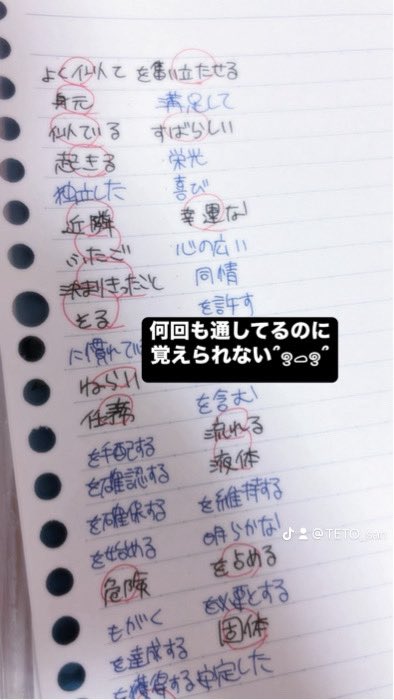 よく似て
身元
似ている
起きる
独立した
近隣
ふたご
決まりきったこと
をする
に慣れて
ねらい
任務
を手配する
を確認する
を確保する
を始める
危険
もがく
を達成する
を獲得する
を奮い立たせる
満足して
すばらしい
栄光
喜び
幸運な
心の広い
同情
を許す
を含む
流れる
液体
を維持する
明らかな
を占める
を必要とする
固体
安定した
何回も通してるのに
覚えられない
@TETO_san